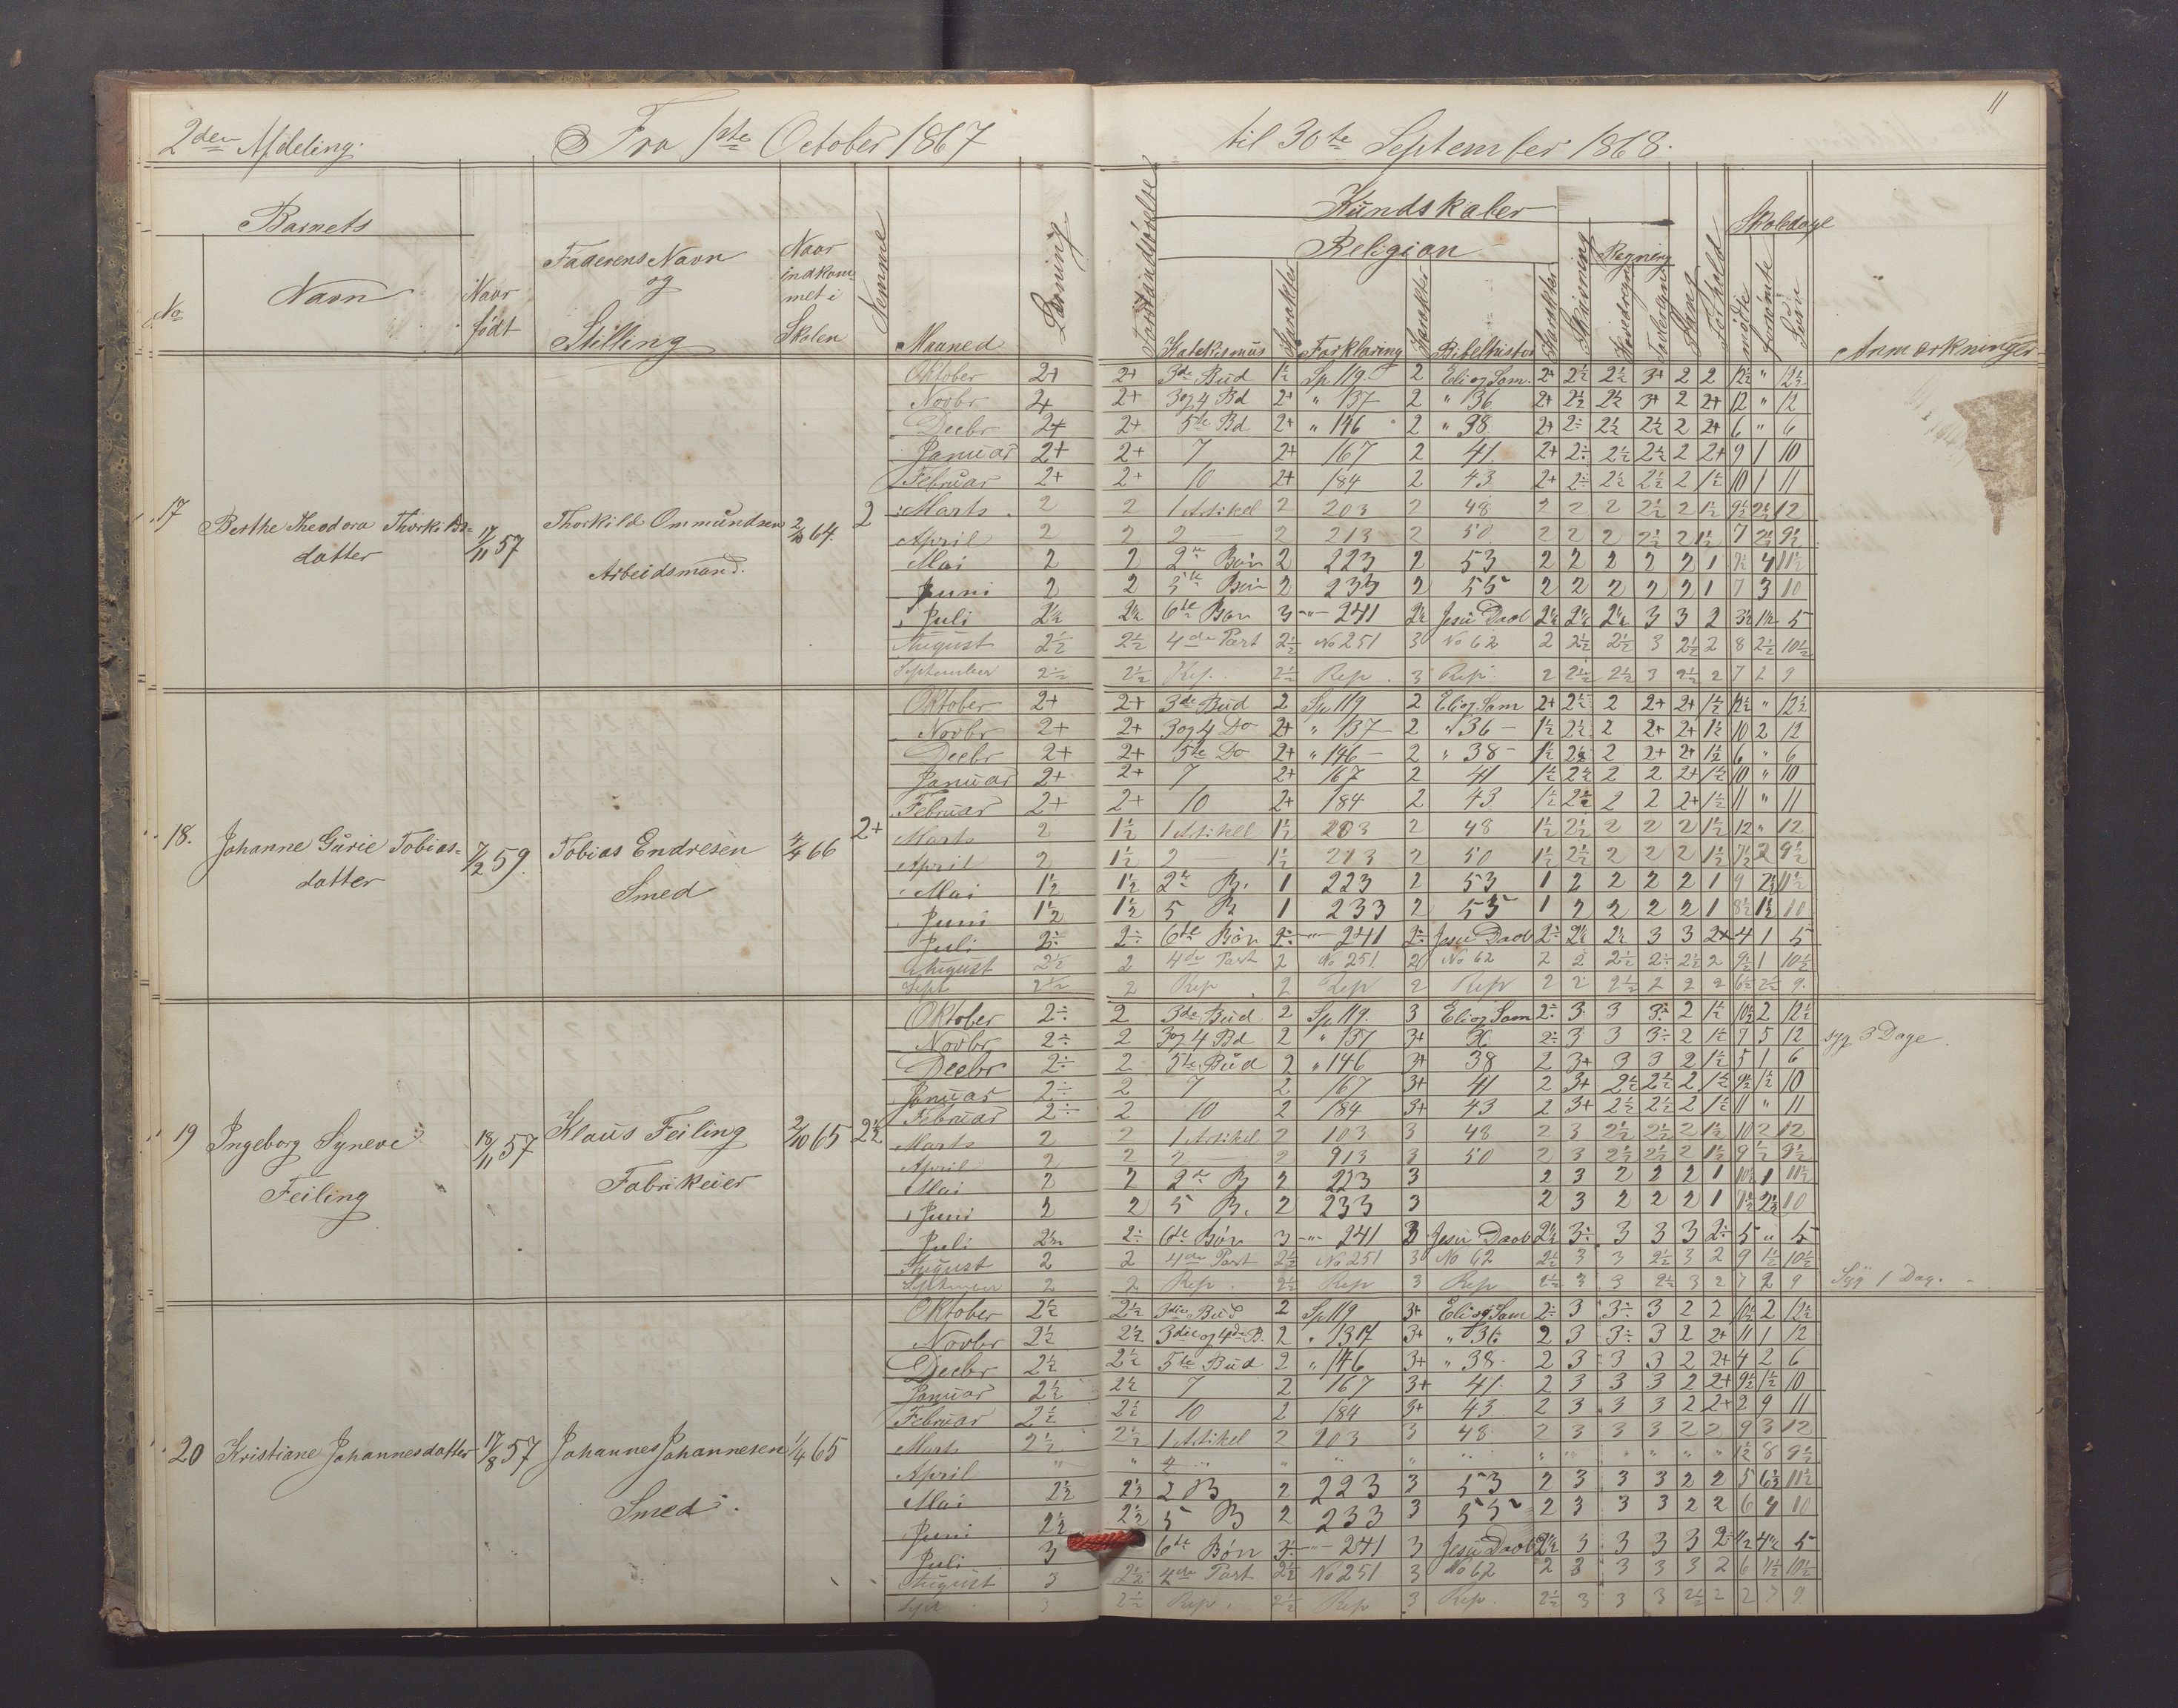 11
2den Afdeling. Fra 1ste October 1867 til 30te September 1868.
Barnets
Kundskaber
Skoledage
Religion
Regning
No
Navn
Naar født
Faderens Navn og Stilling
Naar indkommet i Skolen
Nemme
Maaned
Læsning
Forstandsøvelse
Katekismus
Karakter
Forklaring
Karakter
Bibelhistor
Karakter
Skrivning
Hovedregn
Tavleregn
Sang
Forhold
mødte
forsømte
Anmærkninger
17 Berthe Theodora Thorkilds= datter 17/11 57 Thorkild Ommundsen Arbeidsmand. 2/10 64. 2
Oktober 2+ 2+ 3de Bud 1½ Sp 119. 2 Eli og Sam. 2+ 2½ 2½ 3+ 2 2 12½ " 12½
Novbr 2+ 2+ 3 og 4 Bd 2+ " 137 2 " 36 2+ 2½ 2½ 3+ 2 2+ 12 " 12
Decbr 2+ 2+ 5te Bd 2+ " 146 2 " 38 2+ 2÷ 2½ 2½ 2 2+ 6 " 6
Januar 2+ 2+ 7 2+ 167 2 41 2+ 2÷ 2½ 2½ 2 2+ 9 1 10
Februar 2+ 2+ 10 2+ 184 2 43 2+ 2÷ 2½ 2½ 2 1½ 10 1 11
Marts 2 2 1 Artikel 2 203 2 48 2 2 2 2½ 2 1½ 9½ 2½ 12
April 2 2 2 2 213 2 50 2 2 2 2½ 2 1½ 7 2½ 9½
Mai 2 2 2n Bøn 2 223 2 53 2 2 2 2 2 1 7½ 4 11½
Juni 2 2 5te Bøn 2 233 2 55 2 2 2 2 2 1 7 3 10
Juli 2½ 2½ 6te Bøn 3 -"- 241 2½ Jesu Daab 2½ 2½ 2½ 3 3 2 3½ 1½ 5
August 2½ 2½ 4de Part 2½ No 251 3 No 62 2 2½ 2½ 3 2½ 2 8 2½ 10½
September 2½ 2½ Rep. 2½ Rep. 3 Rep. 2 2½ 2½ 3 2½ 2 7 2 9
18. Johanne Gurie Tobias= datter 7/2 59. Tobias Endresen Smed 4/4 66 2+
Oktober 2+ 2+ 3de Bud 2 Sp 119 2 Eli og Sam 2+ 2½ 2 2+ 2+ 1½ 12½ " 12½
Novbr 2+ 2+ 3 og 4 Do 2+ " 137 2 " 36 1½ 2½ 2 2+ 2+ 1½ 10 2 12
Decbr 2+ 2+ 5te Do 2+ " 146 2 " 38 1½ 2½ 2 2+ 2+ 1½ 6 " 6
Januar 2+ 2+ 7 2+ 167 2 41 1½ 2½ 2 2 2+ 1½ 10 " 10
Februar 2+ 2+ 10 2+ 184 2 43 1½ 2½ 2 2 2+ 1½ 11 " 11
Marts 2 1½ 1 Artikel 1½ 203 2 48 1½ 2½ 2 2 2 1½ 12 " 12
April 2 1½ 2 1½ 213 2 50 1½ 2½ 2 2 2 1½ 7½ 2 9½
Mai 1½ 1½ 2n B. 1 223 2 53 1 2 2 2 2 1 9 2½ 11½
Juni 1½ 1½ 5 B 1 233 2 55 1 2 2 2 2 1 8½ 1½ 10
Juli 2÷ 2÷ 6te Bøn 2÷ -"- 241 2÷ Jesu Daab 2÷ 2½ 2½ 3 3 2+ 4 1 5
August 2½ 2 4de Part 2 No 251 2 No 62 2 2 2½ 2÷ 2½ 2 9½ 1 10½
Sept 2½ 2 Rep. 2 Rep 2 Rep 2 2 2½ 2 2 2 6½ 2½ 9
19 Ingeborg Syneve Feiling 18/11 57 Klaus Feiling Fabrikeier 2/10 65 2½
Oktober 2÷ 2 3de Bud 2 Sp 119. 3 Eli og Sam 2÷ 3 3 3÷ 2 1½ 10½ 2 12½
Novbr 2÷ 2 3 og 4 Bd 2 " 137 3+ 2÷ 3 3 3÷ 2 1½ 7 5 12 syg 3 Dage.
Decbr 2÷ 2 5te Bud 2 " 146 3+ 38 2 3+ 3 3 2 1½ 5 1 6
Januar 2÷ 2 7 2 167 3+ 41 2 3+ 2½ 2½ 2 1½ 9½ ½ 10
Februar 2÷ 2 10 2 184 3+ 43 2 3+ 2½ 2½ 2 1½ 11 " 11
Marts 2 2 1 Artikel 2 103 3 48 2 3 2½ 2½ 2 1½ 10 2 12
April 2 2 2 2 913 3 50 2 3 2½ 2½ 2 1½ 9 ½ 9½
Mai 2 2 2n B 2 223 3 2 3 2 2 2 1 10½ 1 11½
Juni 2 2 5 B. 2 233 3 2 3 2 2 2 1 7½ 2½ 10
Juli 2½ 2÷ 6te Bøn 3 -"- 241 3 Jesu Daab 2½ 3÷ 3 3 3 2÷ 5 " 5
August 2 2 4de Part 2½ No 251 3 No 62 2½ 3 3 2½ 3 2 9 1½ 10½
September 2 2 Rep. 2½ Rep 3 Rep 2½ 3 3 2½ 3 2 7 2 9 Syg 1 Dag.
20 Kristiane Johannesdatter 17/8 57 Johannes Johannesen Smed. 1/4 65
Oktober 2½ 2½ 3die Bud 2 Sp 119 3+ Eli og Sam 2÷ 3 3÷ 3 2 2 10½ 2 12½
Novbr 2½ 2½ 3die og 4de B. 2 " 137 3+ " 36 2 3 3÷ 3 2 2+ 11 1 12
Decbr 2½ 2½ 5te Bud 2 " 146 3+ " 38 2 3 3 3 2 2+ 4 2 6
Januar 2½ 2½ 7 2 167 3+ 41 2 3 3 3 2 2+ 9½ ½ 10
Februar 2½ 2½ 10 2 184 3+ 43 2 3 3 3 2 2+ 2 9 11
Marts 2½ 2½ 1 Artikel 2 203 3 48 2 3 3 3 2 2 9 3 12
April " " 2 " " " " " " " " " " 1½ 8 9½
Mai 2½ 2½ 2 B 2 223 3 53 2 3 3 3 2 2 5 6½ 11½
Juni 2½ 2½ 5 B 2 233 3 55 2 3 3 3 2 2 6 4 10
Juli 3 6te Bøn 3÷ -"- 241 3 Jesu Daab 2½ 3 3 3 3 2÷ ½ 4½ 5
August 3 2½ 4de Part 2½ No 251 3 No 62 2 3 3 3 3 2 6 4½ 10½
Sept 3 2½ Rep. 2½ Rep 3 Rep. 2½ 3 3 3 2½ 2 2 7 9